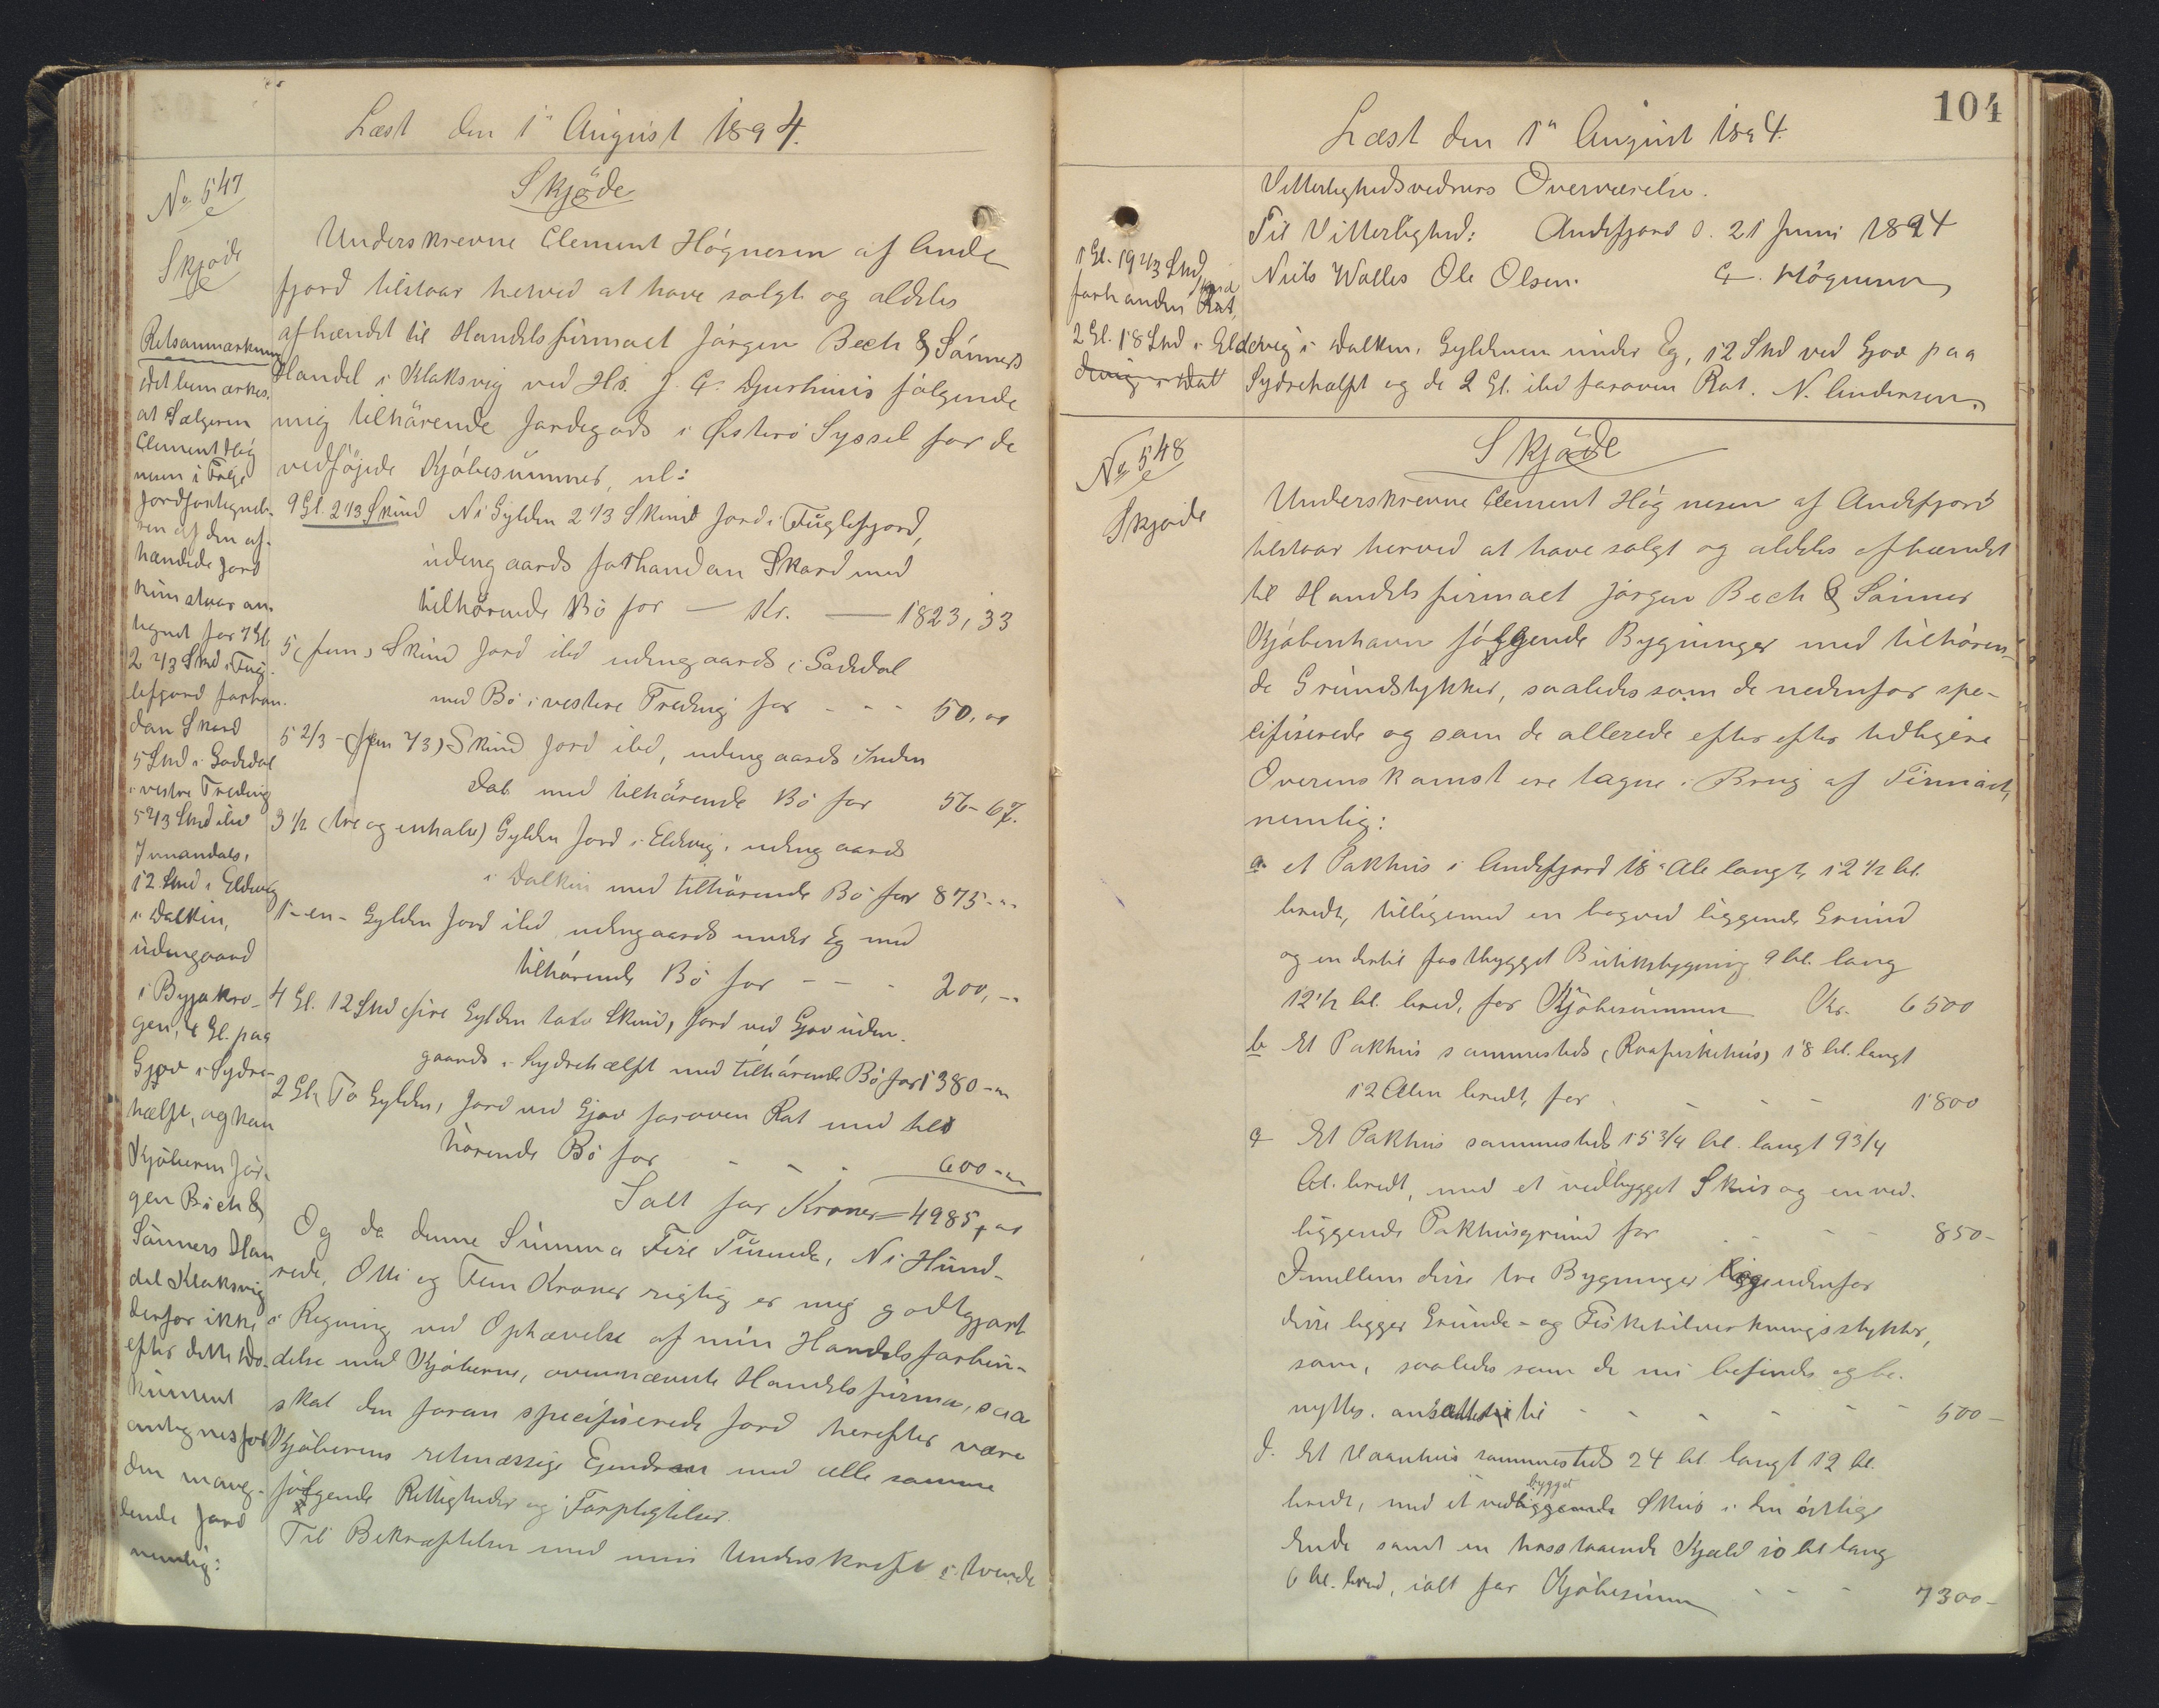 Læst den 1ª August 1894.
No 547
Skjøde
Skjøde
Underskrevne Clement Høgnesen af Ande
fjord tilstaar herved at have solgt og aldeles
afhændet til Handelsfirmaet Jørgen Bech & Sønners
Handel i Klaksvig ved Hr. J. C. Djurhuus følgende
mig tilhørende Jordegods i Østerø Syssel for de
vedføjede Kjøbesummer, nl:
9 Gl. 2 1/3 Skind Ni Gylden 2 1/3 Skind Jord i Fuglefjord,
udengaards forhandan Skard med
tilhørende Bø for — Kr. — 1823,33
5 (fem) Skind Jord ibd udengaards i Sadidal
med Bø i vestre Treding for - - - 50,00
5 2/3 - (fem 2/3) Skind Jord ibd, udengaards Inden
Dal med tilhørende Bø for 56-67.
3 1/2 (tre og enhalv) Gylden Jord i Eldevig, udengaards
i Dalkin med tilhørende Bø for 875-"
1 - en - Gylden Jord ibd udengaards under Eg med
tilhørende Bø for - - - 200,-
4 Gl. 12 Skd (fire Gylden tolv Skind) Jord ved Gjov uden.
gaards i Sydrehælft med tilhørende Bø for 1380-"
2 Gl. To Gylden, Jord ved Gjov foroven Rat med til
hørende Bø for - - - 600-"
Ialt for Kroner = 4985,00
Og da denne Summa Fire Tusunde, Ni Hund-
rede, Otti og Fem Kroner rigtig er mig godtgjort
i Regning ved Ophævelse af min Handelsforbin-
delse med Kjøberne, ovennævnte Handelsfirma, saa
skal den foran specifiserede Jord herefter være
Kjøberens retmæssige Ejendom med alle samme
følgende Rettigheder og Forpligtelser.
Til Bekræftelse med min Underskrift i tvende
Retsanmærkning
Det bemærkes.
at Sælgeren
Clement Høg
nesen i Følge
Jordfortegnel-
sen af den af-
hændede Jord
kun staar an-
tegnet for 7 Gl.
2 2/3 Skd i Fug-
lefjord forhan-
dan Skard
5 Skd i Sadidal
i vestre Treding
5 2/3 Skd ibd
Innandals,
12 Skd i Eldevig
i Dalkin,
udengaard
i Byjakro-
gen, 4 Gl. paa
Gjov i Sydre-
hælft, og kan
Kjøberen Jør-
gen Bech &
Sønners Han
del Klaksvig
derfor ikke
efter dette Do-
kument
antegnes for
den mang-
lende Jord
nemlig:
104
Læst den 1ª August 1894.
Vitterlighedsvidners Overværelse.
Til Vitterlighed: Andefjord d. 21 Juni 1894
Niels Walles Ole Olsen. C. Høgnesen
1 Gl. 19 2/3 Skd
forhanden Rat,
2 Gl. 18 Skd i Eldevig i Dalken, Gyldenen under Eg, 12 Skd ved Gjov paa
Sydrehælft og de 2 Gl. ibd foroven Rat. N. Andersen.
No 548
Skjøde
Skjøde
Underskrevne Clement Høgnesen af Andefjord
tilstaar herved at have solgt og aldeles afhændet
til Handelsfirmaet Jørgen Bech & Sønner
Kjøbenhavn følgende Bygninger med tilhøren-
de Grundstykker, saaledes som de nedenfor spe-
cifiserede og som de allerede efter efter tidligere
Overenskomst ere tagne i Brug af Firmaet,
nemlig:
a. et Pakhus i Andefjord 18 Ale langt, 12 1/2 Al.
bredt, tilligemed en bagved liggende Grund
og en dertil fastbygget Butiksbygning 9 Al. lang
12 1/2 Al. bred, for Kjøbesummen Kr. 6500
b Et Pakhus sammesteds (Raafiskehus) 18 Al. langt
12 Alen bredt, for - - - 1800
c Et Pakhus sammesteds 15 3/4 Al. langt 9 3/4
Al. bredt, med et vedbygget Skur og en ved-
liggende Pakhusgrund for - - - 850-
Imellem disse tre Bygninger og nedenfor
disse ligger Grunde- og Fisketilvirkningsstykker,
som, saaledes som de nu befindes og be-
nyttes, ansættes til - - - - - 500-
d. Et Vaanhus sammesteds 24 Al. langt 12 Al.
bredt, med et vedbygget Skur i den østlige
Ende samt en hosstaaende Kjæld 10 Al lang
6 Al. bred, ialt for Kjøbesum - - - 7300-